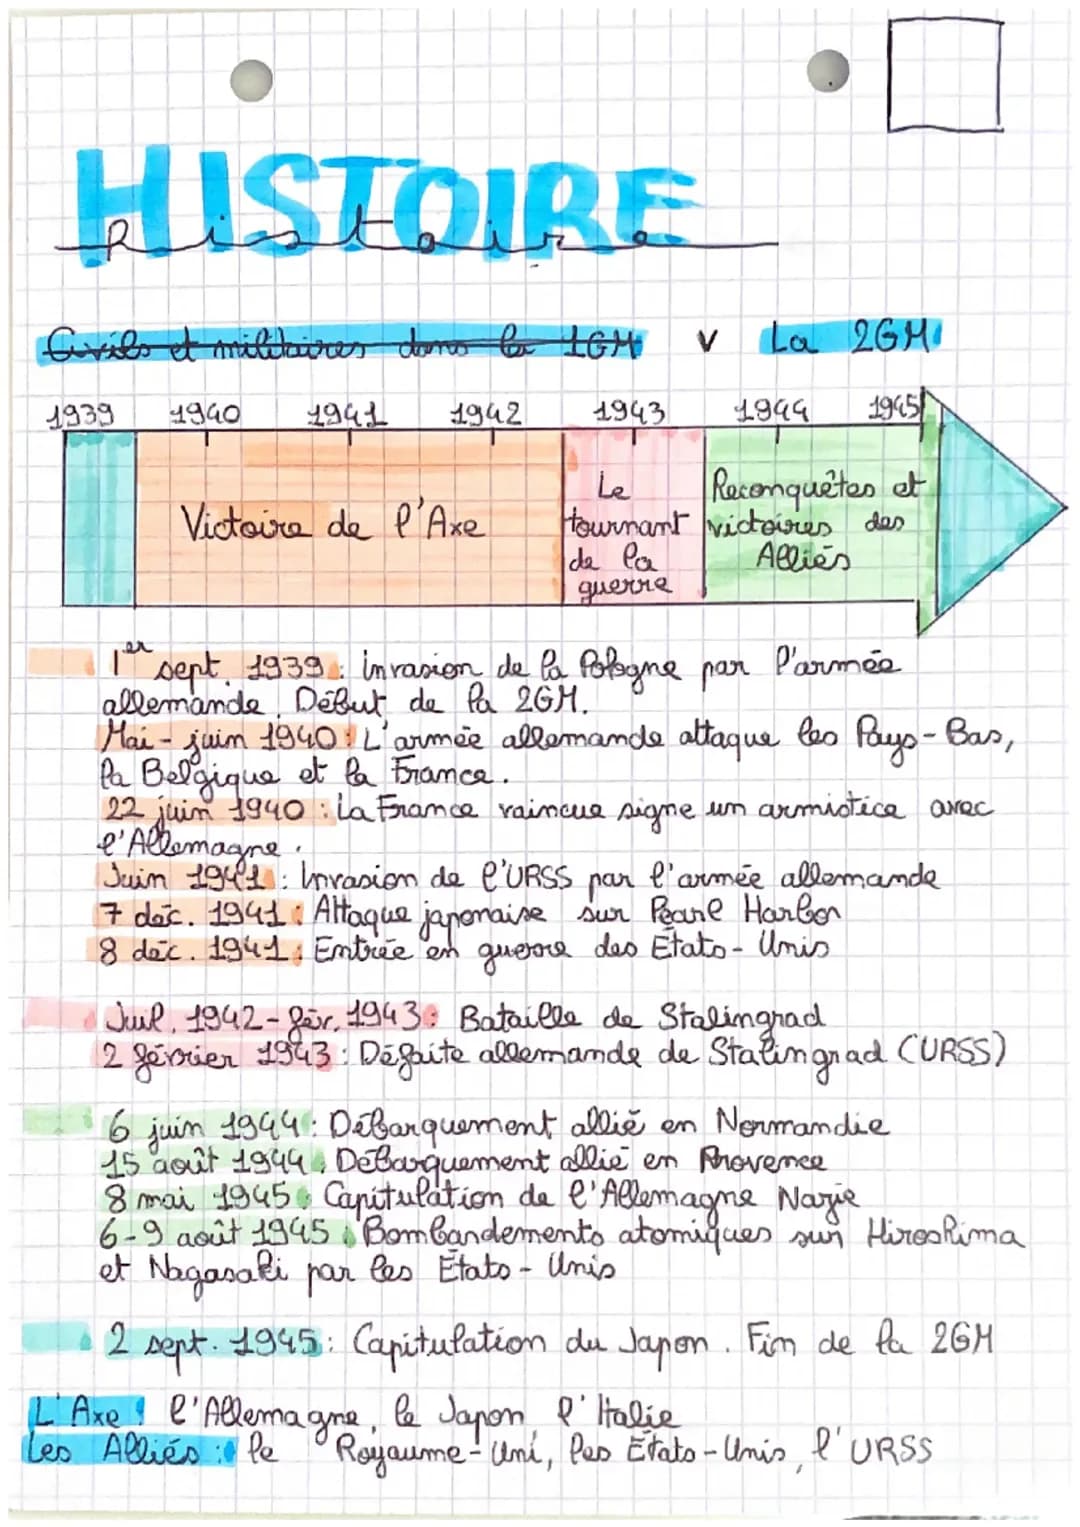 HISTOIRE
histoire
Civils et militaires dans la 1GM v La 2GM
1939 1940 1941 1942 1943 1944 1945
Victoire de l'Axe
Le
tournant
de la
guerre
Reconquêtes et
victoires des
Alliés
1er sept. 1939 : invasion de la Pologne par l'armée
allemande. Début de la 2GM.
Mai - juin 1940 : L'armée allemande attaque les Pays-Bas,
la Belgique et la France.
22 juin 1940 : La France vaincue signe un armistice avec
l'Allemagne.
Juin 1941 : Invasion de l'URSS par l'armée allemande
7 déc. 1941 : Attaque japonaise sur Pearl Harbor
8 déc. 1941 : Entrée en guerre des États-Unis
Juil. 1942 - fév. 1943 : Bataille de Stalingrad
2 février 1943 : Défaite allemande de Stalingrad (URSS)
6 juin 1944 : Débarquement allié en Normandie
15 août 1944 : Débarquement allié en Provence
8 mai 1945 : Capitulation de l'Allemagne Nazie
6-9 août 1945 : Bombardements atomiques sur Hiroshima
et Nagasaki par les États-Unis
2 sept. 1945 : Capitulation du Japon. Fin de la 2GM
L'Axe : l'Allemagne, le Japon, l'Italie
Les Alliés : le Royaume-Uni, les États-Unis, l'URSS